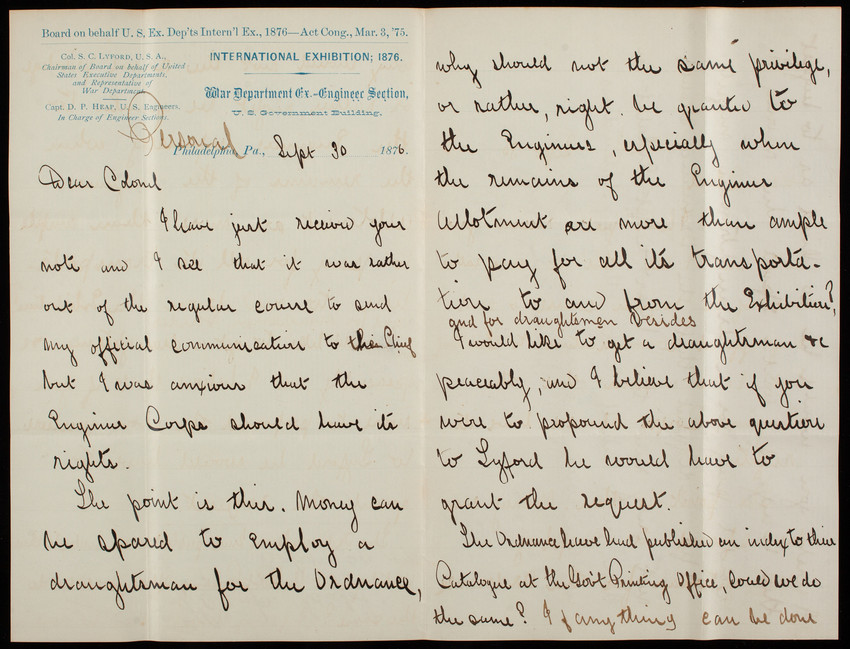 Board on behalf U. S. Ex. Dep'ts Intern'l Ex., 1876—Act Cong., Mar. 3, '75.
Col. S. C. Lyford, U. S. A.,
Chairman of Board on behalf of United
States Executive Departments,
and Representative of
War Department.
Capt. D. P. Heap, U. S. Engineers,
In Charge of Engineer Section.
INTERNATIONAL EXHIBITION; 1876.
War Department Ex.-Engineer Section,
U. S. Government Building.
Personal
Philadelphia, Pa., Sept 30 1876.
Dear Colonel
I have just received your
note and I see that it was rather
out of the regular course to send
my official communication to the Chief
but I was anxious that the
Engineer Corps should have its
rights.
The point is this. Money can
be spared to employ a
draughtsman for the Ordnance,
why should not the same privilege,
or rather, right be granted to
the Engineers, especially when
the remains of the Engineer
allotment are more than ample
to pay for all its transporta-
tion to and from the Exhibition?
and for draughtsmen besides
I would like to get a draughtsman &c
peaceably, and I believe that if you
were to propound the above question
to Lyford he would have to
grant the request.
The Ordnance have had published an index to their
Catalogue at the Gov't Printing Office, could we do
the same? If anything can be done